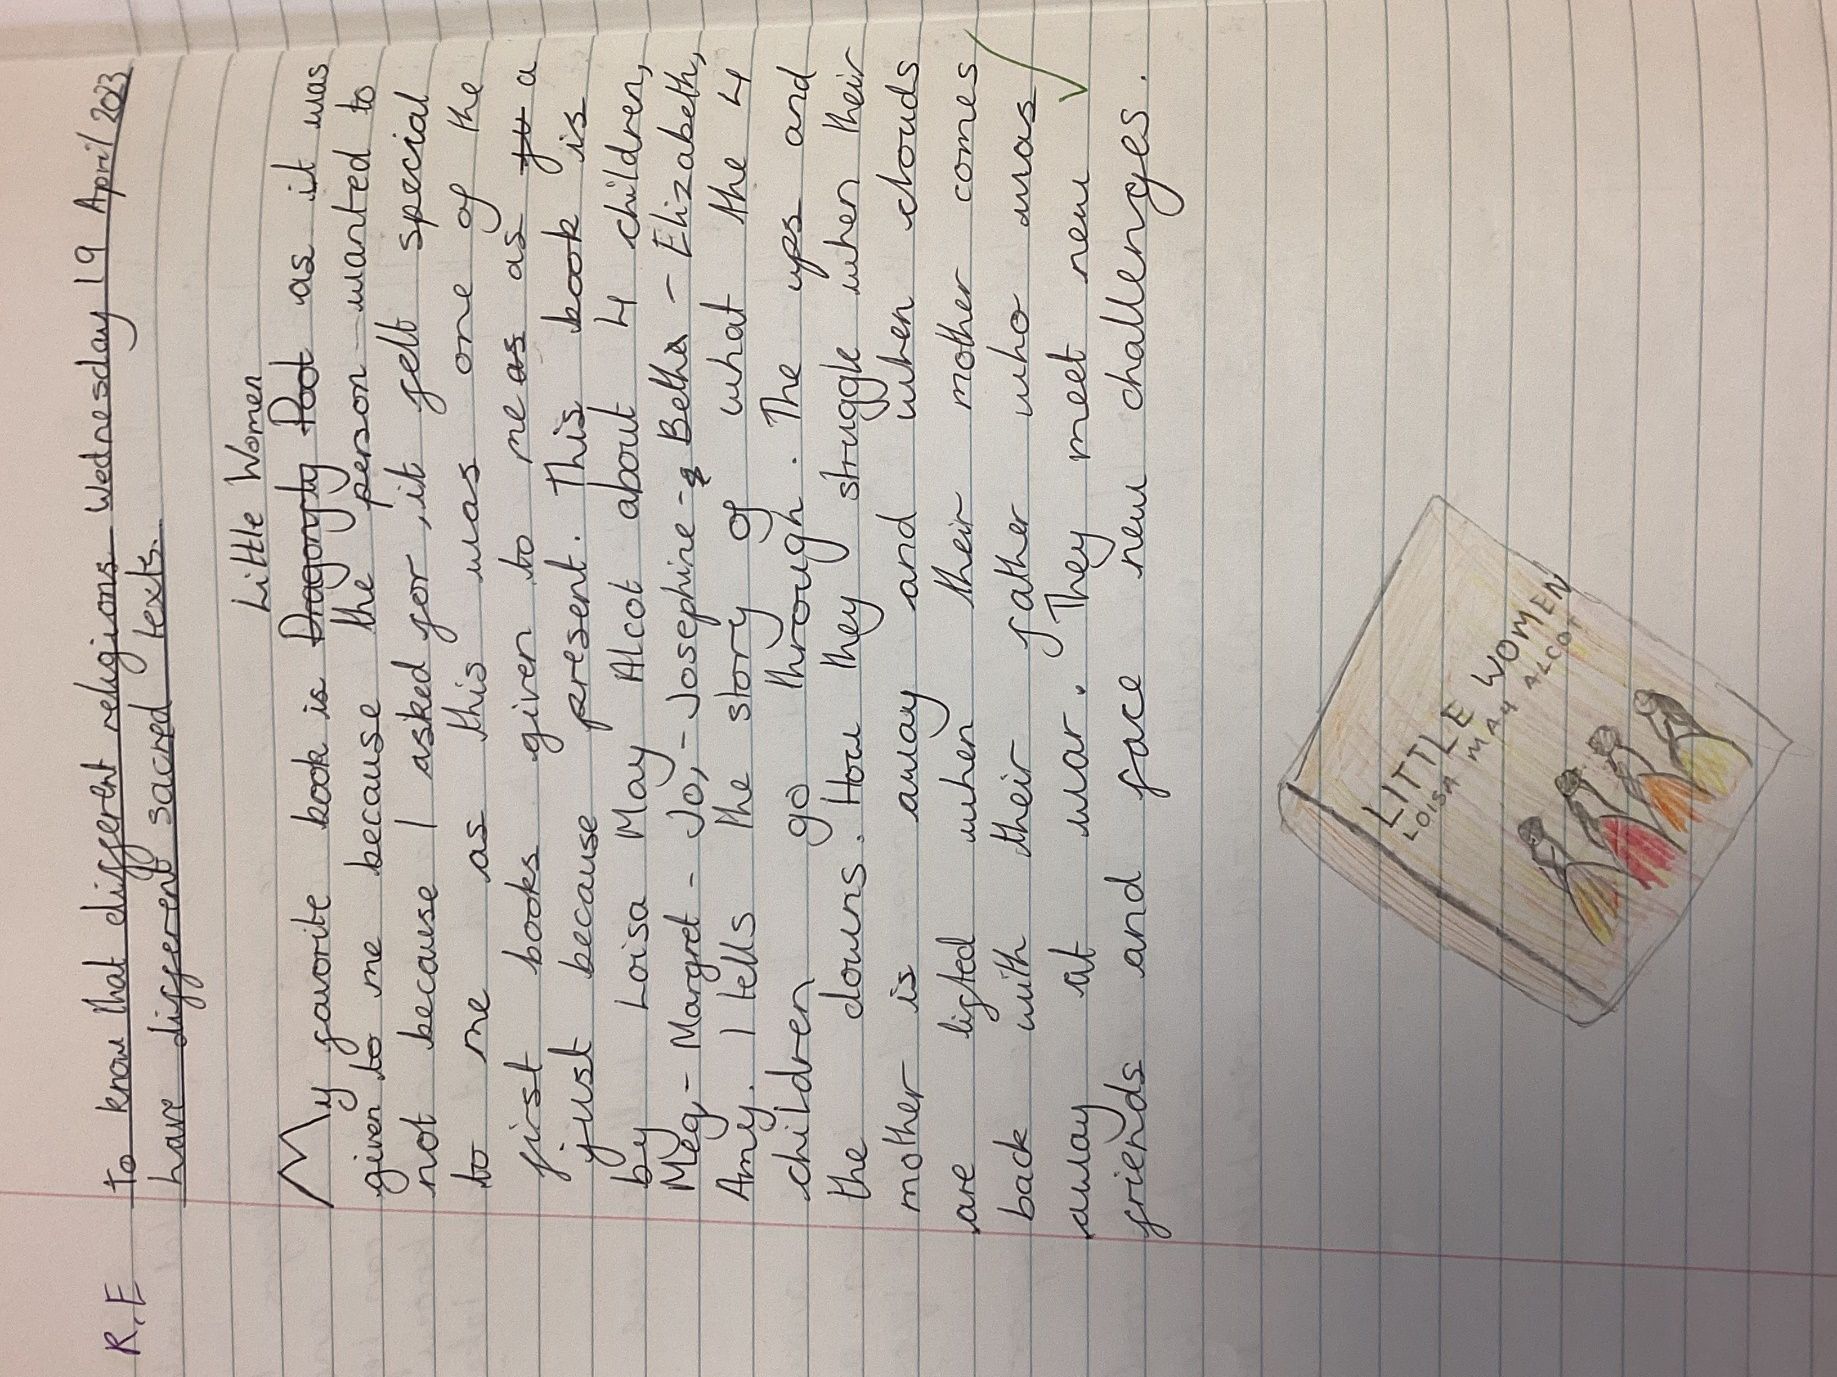 R.E To know that different religions Wednesday 19 April 2023
have different sacred texts.
Little Women
My favorite book is Dragonfly Pool as it was
given to me because the person wanted to
not because I asked for, it felt special
to me as this was one of the
first books given to me as as a
just because present. This book is
by Loisa May Alcot about 4 children,
Meg,- Margret - Jo,- Josephine - Beth - Elizabeth,
Amy. I tells the story of what the 4
children go through. The ups and
the downs. How they struggle when their
mother is away and when clouds
are lifted when their mother comes
back with their father who was
away at war. They meet new
friends and face new challenges.
LITTLE WOMEN
LOISA MAY ALCOT